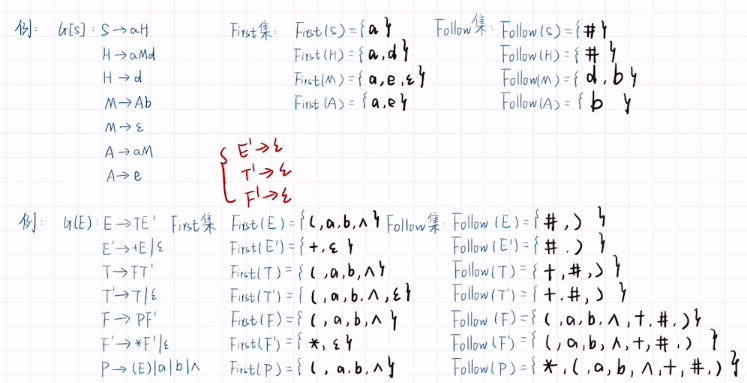 例: G[S]: S→aH First集: First(S)={a} Follow集: Follow(S)={#}
H→aMd First(H)={a,d} Follow(H)={#}
H→d First(M)={a,e,ε} Follow(M)={d,b}
M→Ab First(A)={a,e} Follow(A)={b}
M→ε
A→aM
A→e
E'→ε
T'→ε
F'→ε
例: G(E): E→TE' First集 First(E)={(,a,b,∧} Follow集: Follow(E)={#,)}
E'→+E|ε First(E')={+,ε} Follow(E')={#.)}
T→FT' First(T)={(,a,b,∧} Follow(T)={+,#,)}
T'→T|ε First(T')={(,a,b.∧,ε} Follow(T')={+.#,)}
F→PF' First(F)={(,a,b,∧} Follow(F)={(,a,b.∧,+,#,)}
F'→*F'|ε First(F')={*,ε} Follow(F')={(,a,b,∧,+,#,)}
P→(E)|a|b|∧ First(P)={(,a,b,∧} Follow(P)={*,(,a,b,∧,+,#,)}